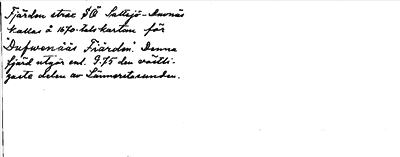 Fjärden strax SÖ Saltsjö-Duvnäs
kallas å 1670-talskartan för
"Dufwenääs Fiärden". Denna
fjärd utgör enl. 9.75 den västli-
gaste delen av Lännerstasunden.